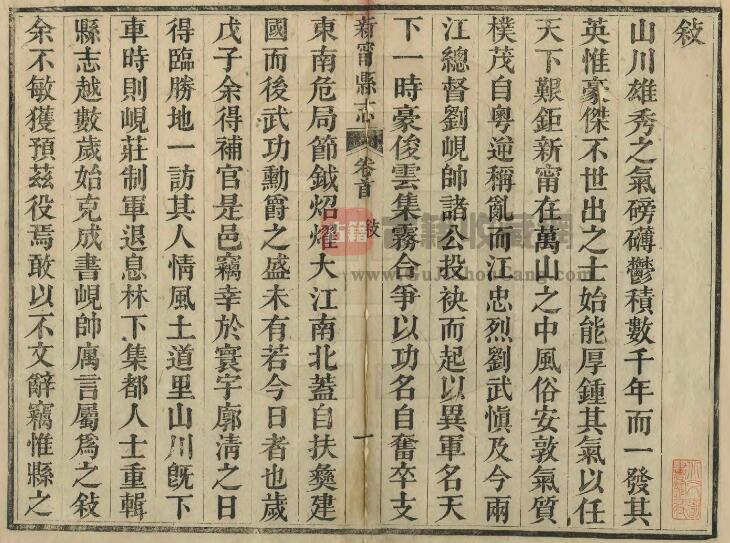 敘
山川雄秀之氣磅礡鬱積數千年而一發其
英惟豪傑不世出之士始能厚鍾其氣以任
天下艱鉅新甯在萬山之中風俗安敦氣質
樸茂自粵逆稱亂而江忠烈劉武愼及今兩
江總督劉峴帥諸公投袂而起以異軍名天
下一時豪俊雲集霧合爭以功名自奮卒支
新甯縣志
卷首
敘
一
東南危局節鉞炤燿大江南北蓋自扶彝建
國而後武功勳爵之盛未有若今日者也歲
戊子余得補官是邑竊幸於寰宇廓清之日
得臨勝地一訪其人情風土道里山川旣下
車時則峴莊制軍退息林下集都人士重輯
縣志越數歲始克成書峴帥寓言屬爲之敘
余不敏獲預茲役焉敢以不文辭竊惟縣之
古籍收藏網
www.GuJiShouCang.com